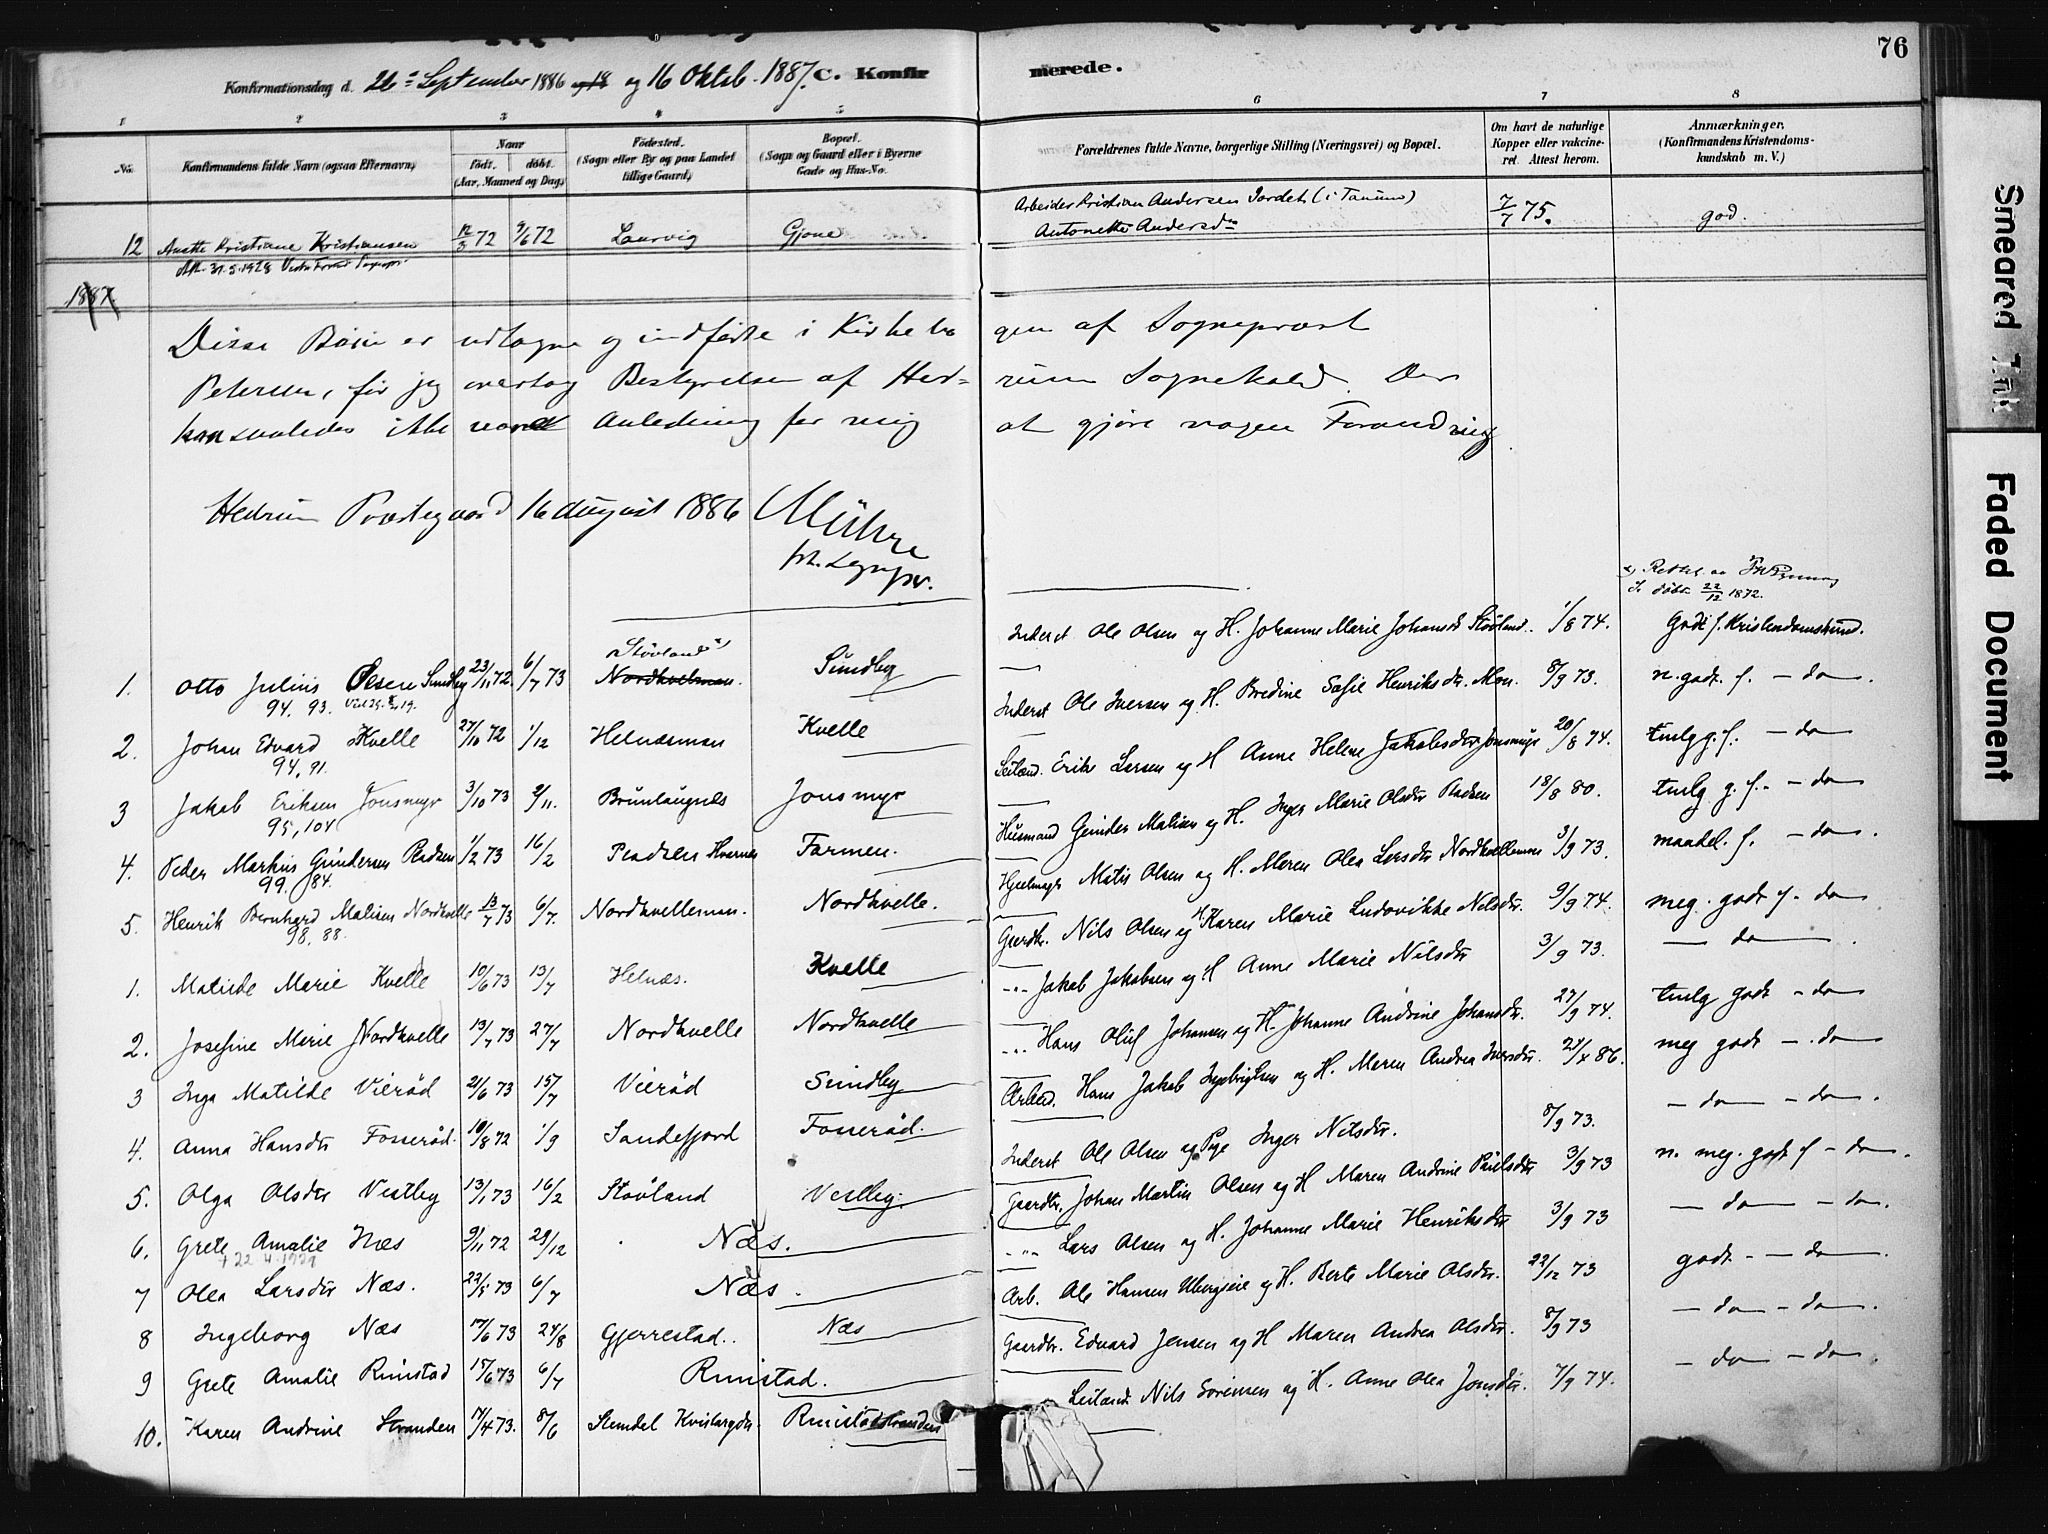 76
Konfirmationsdag d. 26de September 1886 og 16 Oktob. 1887. C. Konfirmerede.
1 2 3 4 5 6 7 8
No. Konfirmandens fulde Navn (ogsaa Efternavn) Naar födt. döbt. (Aar, Maaned og Dag) Födested. (Sogn eller By og paa Landet tillige Gaard) Bopæl. (Sogn og Gaard eller i Byerne Gade og Hus-No. Forældrenes fulde Navne, borgerlige Stilling (Næringsvei) og Bopæl. Om havt de naturlige Kopper eller vakcineret. Attest herom. Anmærkninger. (Konfirmandens Kristendomskundskab m. V.)
12 Anette Kristiane Kristiansen 12/3 72 9/6 72 Laurvig Gjone Arbeider Kristian Andersen Jordet (i Tanum) Antonette Andersd. 7/7 75. god.
Att. 31.5.1928
1887.
Disse Börn er udtagne og indförte i Kirkebogen af Sogneprest
Petersen, för jeg overtog Bestyrelsen af Hedrum Sognekald. Der
har saaledes ikke været Anledning for mig at gjöre nogen Forandring.
Hedrum Præstegaard 16 August 1886
1. Otto Julius Olsen Sundby 23/11 72. 6/7 73 Stövland Nordkvelman. Sundby Inderst Ole Olsen og H. Johanne Marie Johansd. Stövland. 1/8 74. Godt f. Kristendomskund.
94. 93.
döbt 22/12 1872.
2. Johan Edvard Kvelle 27/10 72 1/12 Helnæsman Kvelle Inderst Ole Iversen og H. Bredine Sofie Henriksdr. Mon. 8/9 73. n. godt. f. — do
94, 91.
3 Jakob Eriksen Jonsmyr 3/10 73 2/11. Brunlaugnes Jonsmyr Leilænd. Erik Larsen og H Anne Helene Jakobsdr Jonsmyr 20/8 74. tmlg g. f. — do
95, 104
4. Peder Markus Gundersen Pladsen 1/2 73 16/2 Pladsen Hvarnes Farmen. Husmand Gunder Matisen og H. Inger Marie Olsdr Pladsen 18/8 80. tmlg g. f. — do
99. 84.
5. Henrik Bernhard Matisen Nordkvelle 13/7 73 6/7. Nordkvelleman. Nordkvelle. Hjulmager Matis Olsen og H. Maren Olea Larsdr Nordkvelleman 3/9 73. maadel. f. — do
98, 88.
1. Matilde Marie Kvelle 10/6 73 13/7 Helnæs. Kvelle Gaardbr. Nils Olsen og H Karen Marie Ludovikke Nilsdr. 9/9 74. meg. godt f. do
2. Josefine Marie Nordkvelle 13/7 73 27/7 Nordkvelle Nordkvelle Jakob Jakobsen og H Anne Marie Nilsdr 3/9 73. — do —.
3 Inga Matilde Vieröd 21/6 73 15/7 Vieröd Sundby Hans Oluf Johansen og H. Johanne Andrine Johansdr. 27/9 74. tmlg godt — do
4. Anna Hansdr Fosseröd. 10/8 72 1/9 Sandefjord Fosseröd. Arbeid. Hans Jakob Ingebrigtsen og H. Maren Andrea Iversdr. 21/X 86. meg godt —. do
5. Olga Olsdr Vestby 13/1 73 16/2 Stövland Vestby. Inderst Ole Olsen og Pige Inger Nilsdr. 8/9 73. — do — do.
6. Grete Amalie Næs 9/11 72 29/12 Næs. Gaardbr. Johan Martin Olsen og H Maren Andrine Paulsdr 3/9 73 n. meg. godt f — do.
+ 22.4.1929
7 Olea Larsdr Næs. 22/5 73 6/7 Næs. Lars Olsen og H. Johanne Marie Henriksdr 3/9 73 — do — do.
8 Ingeborg Næs 17/6 73 24/8 Gjerrestad. Næs Arb. Ole Hansen og H. Berte Marie Olsdr. 22/12 73 godt — do —.
9 Grete Amalie Rimstad 15/6 73 6/7 Rimstad. Gaardbr. Edvard Jensen og H Maren Andrea Olsdr. 8/9 73 — do — do.
10. Karen Andrine Stranden 17/4 73. 8/6 Slemdal Rimstadstranden Leilænd. Nils Sörensen og H. Anne Olea Jonsdr. 7/9 74. — do — do.
Smeared Ink
Faded Document